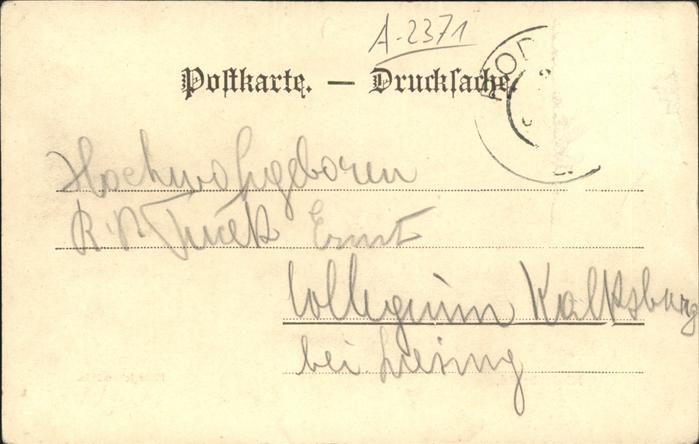 A-2371
Postkarte. — Drucksache.
Hochwohlgeboren
R. P. Ernst
Collegium Kalksburg
bei Liesing